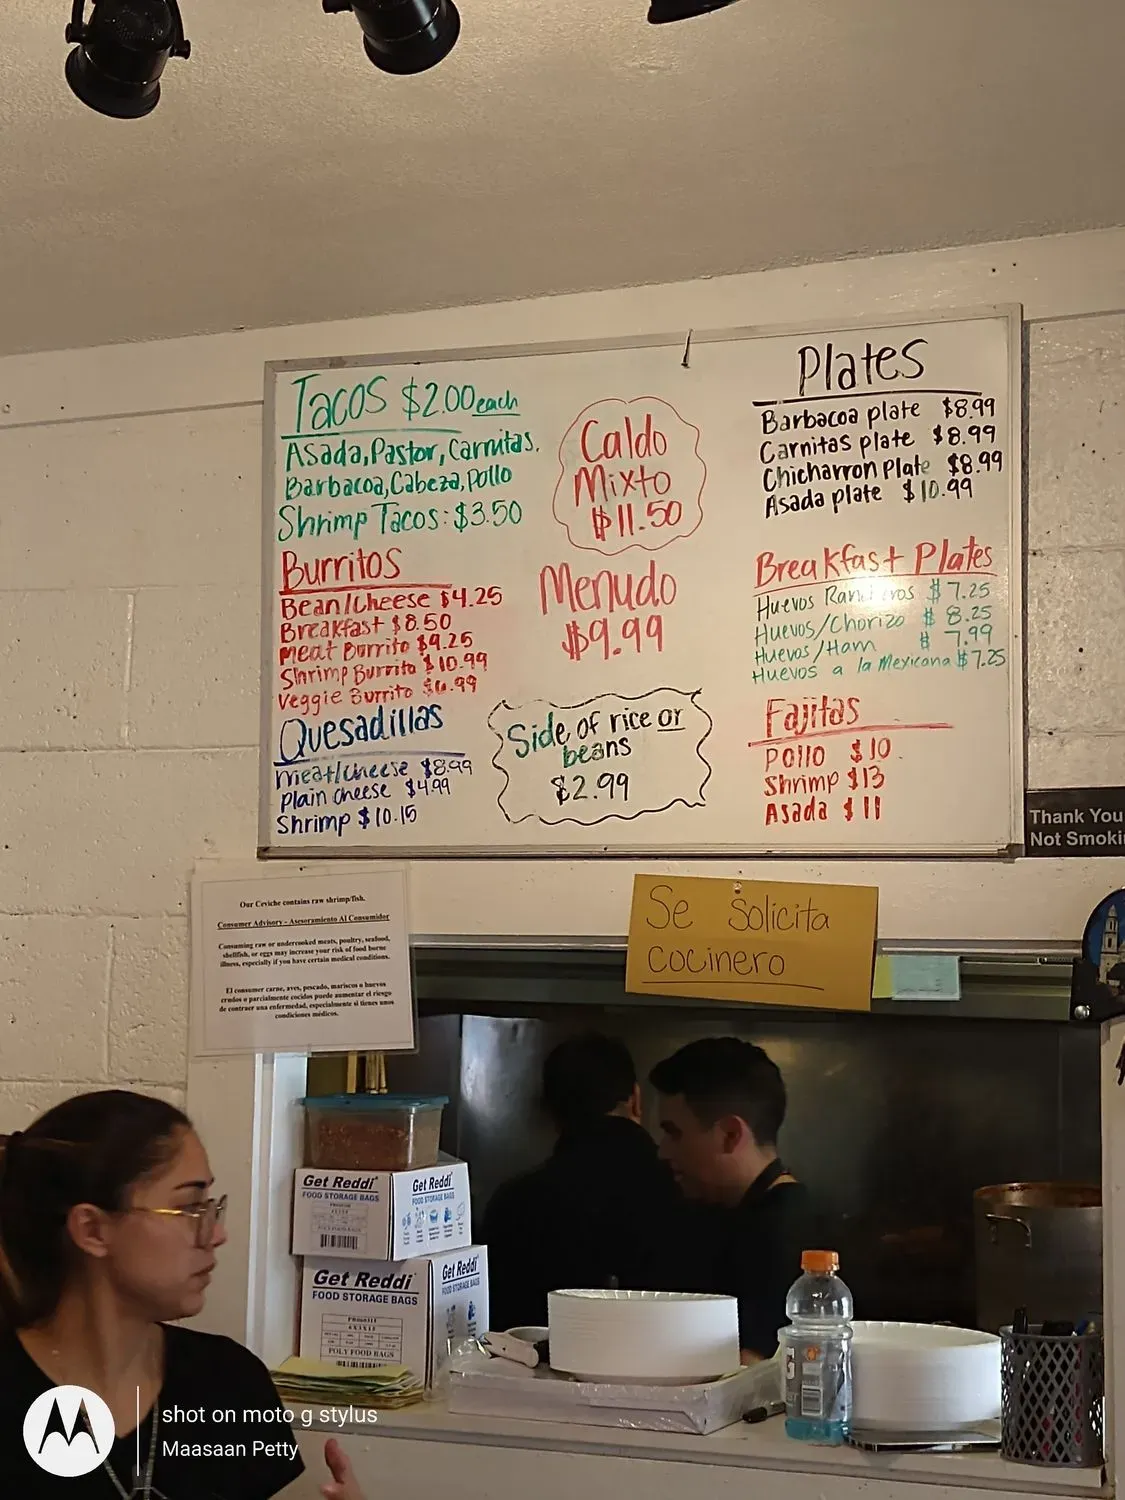 Tacos $2.00 each
Asada, Pastor, Carnitas.
Barbacoa, Cabeza, pollo
Shrimp Tacos: $3.50
Burritos
Bean/Cheese $4.25
Breakfast $8.50
Meat Burrito $9.25
Shrimp Burrito $10.99
Veggie Burrito $6.99
Quesadillas
Meat/cheese $8.99
Plain cheese $4.99
Shrimp $10.15
Caldo
Mixto
$11.50
Menudo
$9.99
Side of rice or
beans
$2.99
Plates
Barbacoa plate $8.99
Carnitas plate $8.99
Chicharron plate $8.99
Asada plate $10.99
Breakfast Plates
Huevos Rancheros $7.25
Huevos/Chorizo $8.25
Huevos/Ham $7.99
Huevos a la Mexicana $7.25
Fajitas
Pollo $10
Shrimp $13
Asada $11
Thank You
Not Smoki
Our Ceviche contains raw shrimp/fish.
Consumer Advisory - Asesoramiento Al Consumidor
Consuming raw or undercooked meats, poultry, seafood,
shellfish, or eggs may increase your risk of food borne
illness, especially if you have certain medical conditions.
El consumer carne, aves, pescado, mariscos o huevos
crudos o parcialmente cocidos puede aumentar el riesgo
de contraer una enfermedad, especialmente si tienes unos
condiciones médicos.
Se Solicita
cocinero
Get Reddi
FOOD STORAGE BAGS
Get Reddi
FOOD STORAGE BAGS
Get Reddi
FOOD STORAGE BAGS
POLY FOOD BAGS
Get Reddi
FOOD STORAGE BAGS
shot on moto g stylus
Maasaan Petty